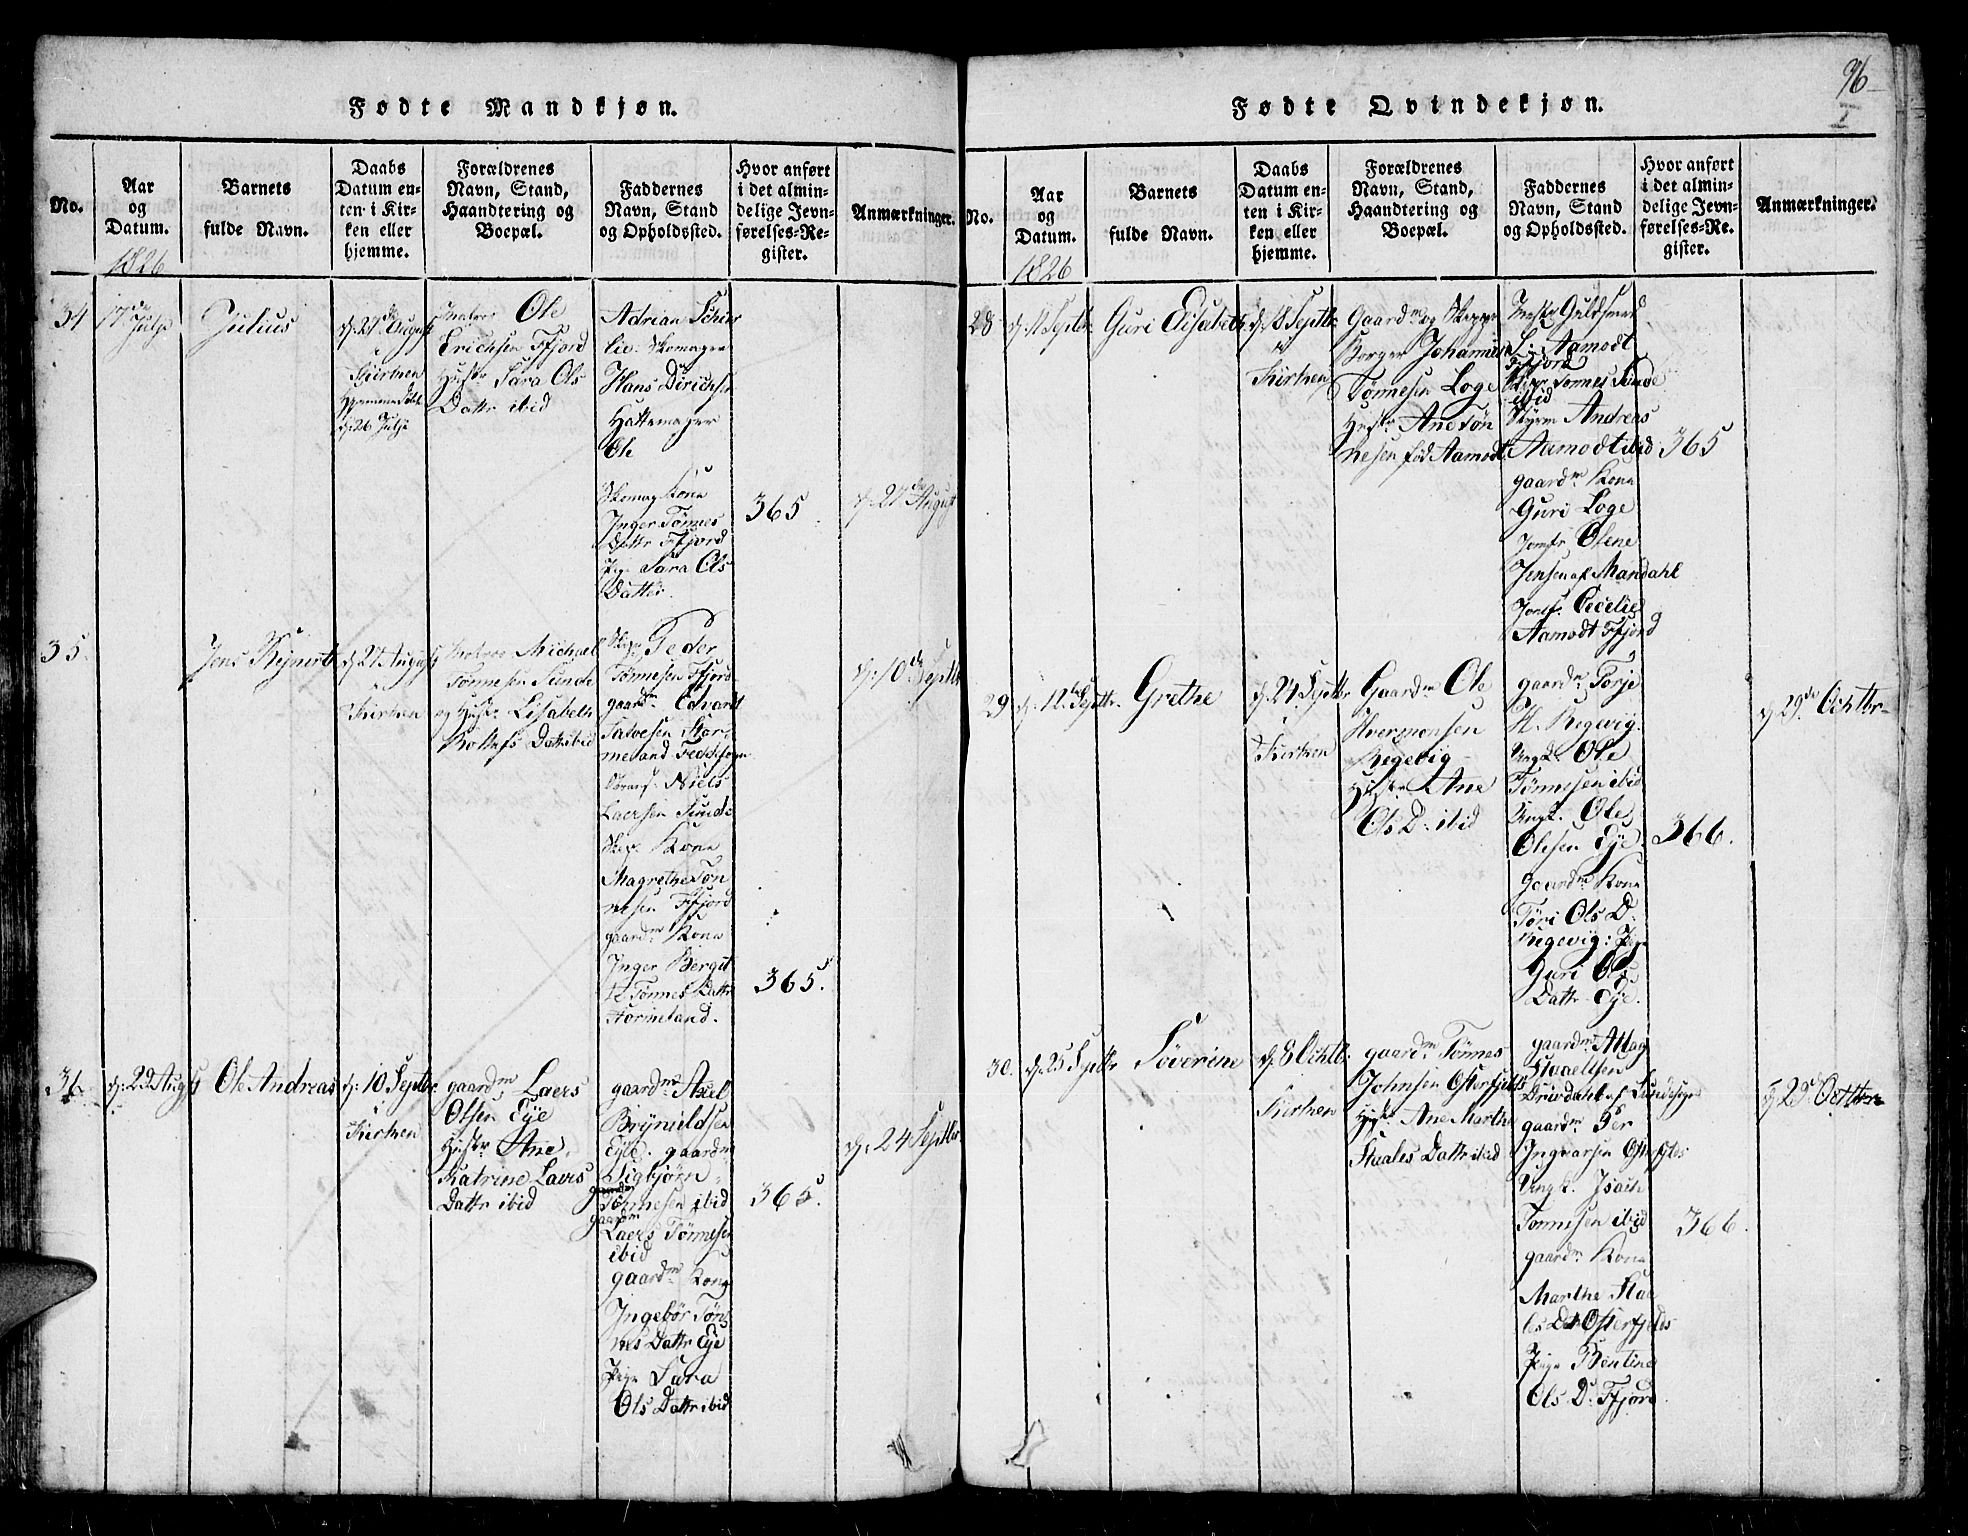 Fødte Mandkjøn.
No.
Aar
og
Datum.
1826
Barnets
fulde Navn.
Daabs
Datum en-
ten i Kir-
ken eller
hjemme.
Forældrenes
Navn, Stand,
Haandtering og
Boepæl.
Faddernes
Navn, Stand
og Opholdssted.
Hvor anført
i det almin-
delige Jevn-
førelses-Re-
gister.
Anmærkninger.
34
17de Julji
Julius
d: 27de August
i Kirken
d: 26 Julji
Ole
Erichsen Ffjord
Hustr Sara Ols
Dattr ibid
Adrian
Skomager
Hans Dirichsen
Hattemager
Ole
Skomag Kone
Inger Tønnes
Dattr Ffjord
Pige Sara Ols
Datter.
365
d: 27de August
35.
Jens
d: 27 August
i Kirken
Michael
Tønnesen Sunde
og Hustr Lisabeth
Dattr ibid
Peder
Tønnesen Ffjord
gaardm Edvardt
Salvesen Stor-
meland
Niels
Laersen Sunde
Kone
Magrethe Tøn
nesen Ffjord
gaardm Kone
Inger Bergit
te Tønnes Dattr
Stormeland.
365.
d: 10de Septbr
36
d: 22 August
Ole Andreas
d: 10 Septbr
i
Kirken
gaardm Laers
Olsen Eye
Hustr Ane
Katrine Laers
Dattr ibid
gaardm Axel
Brynildsen
Eye. gaardm
Sigbjørn
Tønnesen ibid
gaardm
Laers Tønnesen
ibid
gaardm Kone
Ingebor Tøn
nes Dattr Eye
Pige Sara
Ols Dattr ibid
365.
d: 24 Septbr
96
Fødte Qvindekjøn.
No.
Aar
og
Datum.
1826
Barnets
fulde Navn.
Daabs
Datum en-
ten i Kir-
ken eller
hjemme.
Forældrenes
Navn, Stand,
Haandtering og
Boepæl.
Faddernes
Navn, Stand
og Opholdssted.
Hvor anført
i det almin-
delige Jevn-
førelses-Re-
gister.
Anmærkninger.
28
Septbr
Guri Elisabeth
Septbr
i
Kirken
Gaardm og
Borger Johannes
Tønnesen Loge
Hustr Ane Tøn
nesen fød Aamodt
Guldsmed
Aamodt
Ffjord
Tønnes Sunde
ibid
Andreas
Aamodt ibid
gaardm Kone
Guri Loge
Jomfr Olene
Jensen af Mandahl
Jomf: Cecelie
Aamodt Ffjord
365
29
d: 12te Septbr.
Grethe
d: 24 Septbr
i Kirken
Gaardm Ole
Hermonsen
Regevig
Hustr Ane
Ols D: ibid
gaardm Torje
H. Regvig.
Ungk. Ole
Tønnesen ibid
Ungk. Ole
Olesen Eye.
gaardm Kone
Tøri Ols D:
Regevig: Pige
Guri Ols
Dattr Eye.
366.
d: 29de Ochtbr
30.
d: 25 Septbr
Søverine
d: 8 Ochtb.
i
Kirken
gaardm Tønnes
Johnsen Osterfjelds
Hustr Ane Marthe
Staales Dattr ibid
gaardm Attag
Staaelsen
Drivdahl af Lundesogn
gaardm Per
Ingvarsen Osterfjelds
Ungk. Isach
Tønnesen ibid
gaardm Kone
Marthe Staa
les Dat Osterfjelds
Pige Bentine
Ols D: Ffjord.
366.
d: 29 Octbr